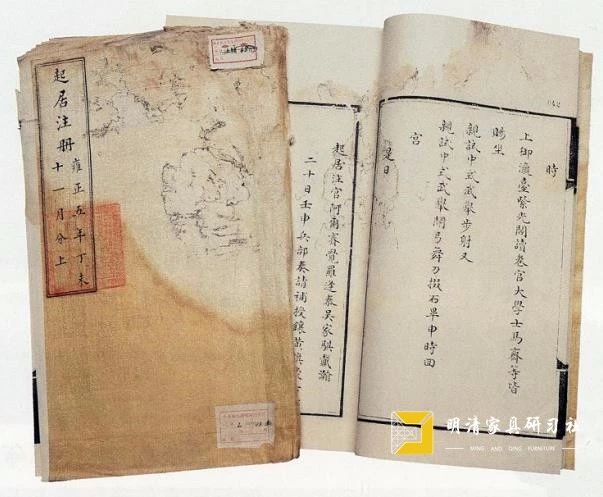 起居注冊
雍正五年丁未
十一月分上
042
時
上御瀛臺紫光閣讀卷官大學士馬齊等皆
賜坐
親試中式武舉步射又
親試中式武舉開弓舞刀掇石畢申時回
宮
是日
起居注官阿爾賽覺羅逢泰吳家騏戴瀚
二十日壬申兵部奏請補授鑲黃旗
明清家具研习社
MING AND QING FURNITURE